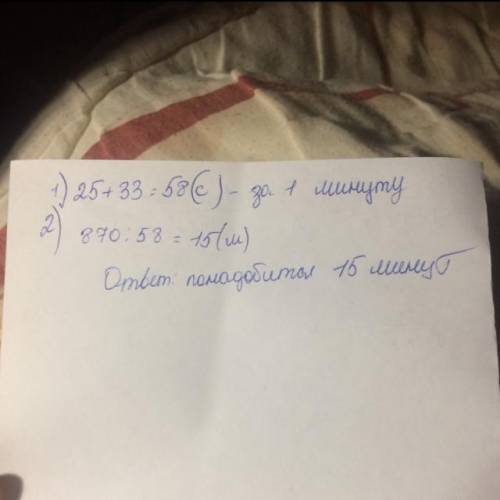 1) 25+33=58(с) - за 1 минуту
2) 870:58=15(м)
Ответ: понадобится 15 минут